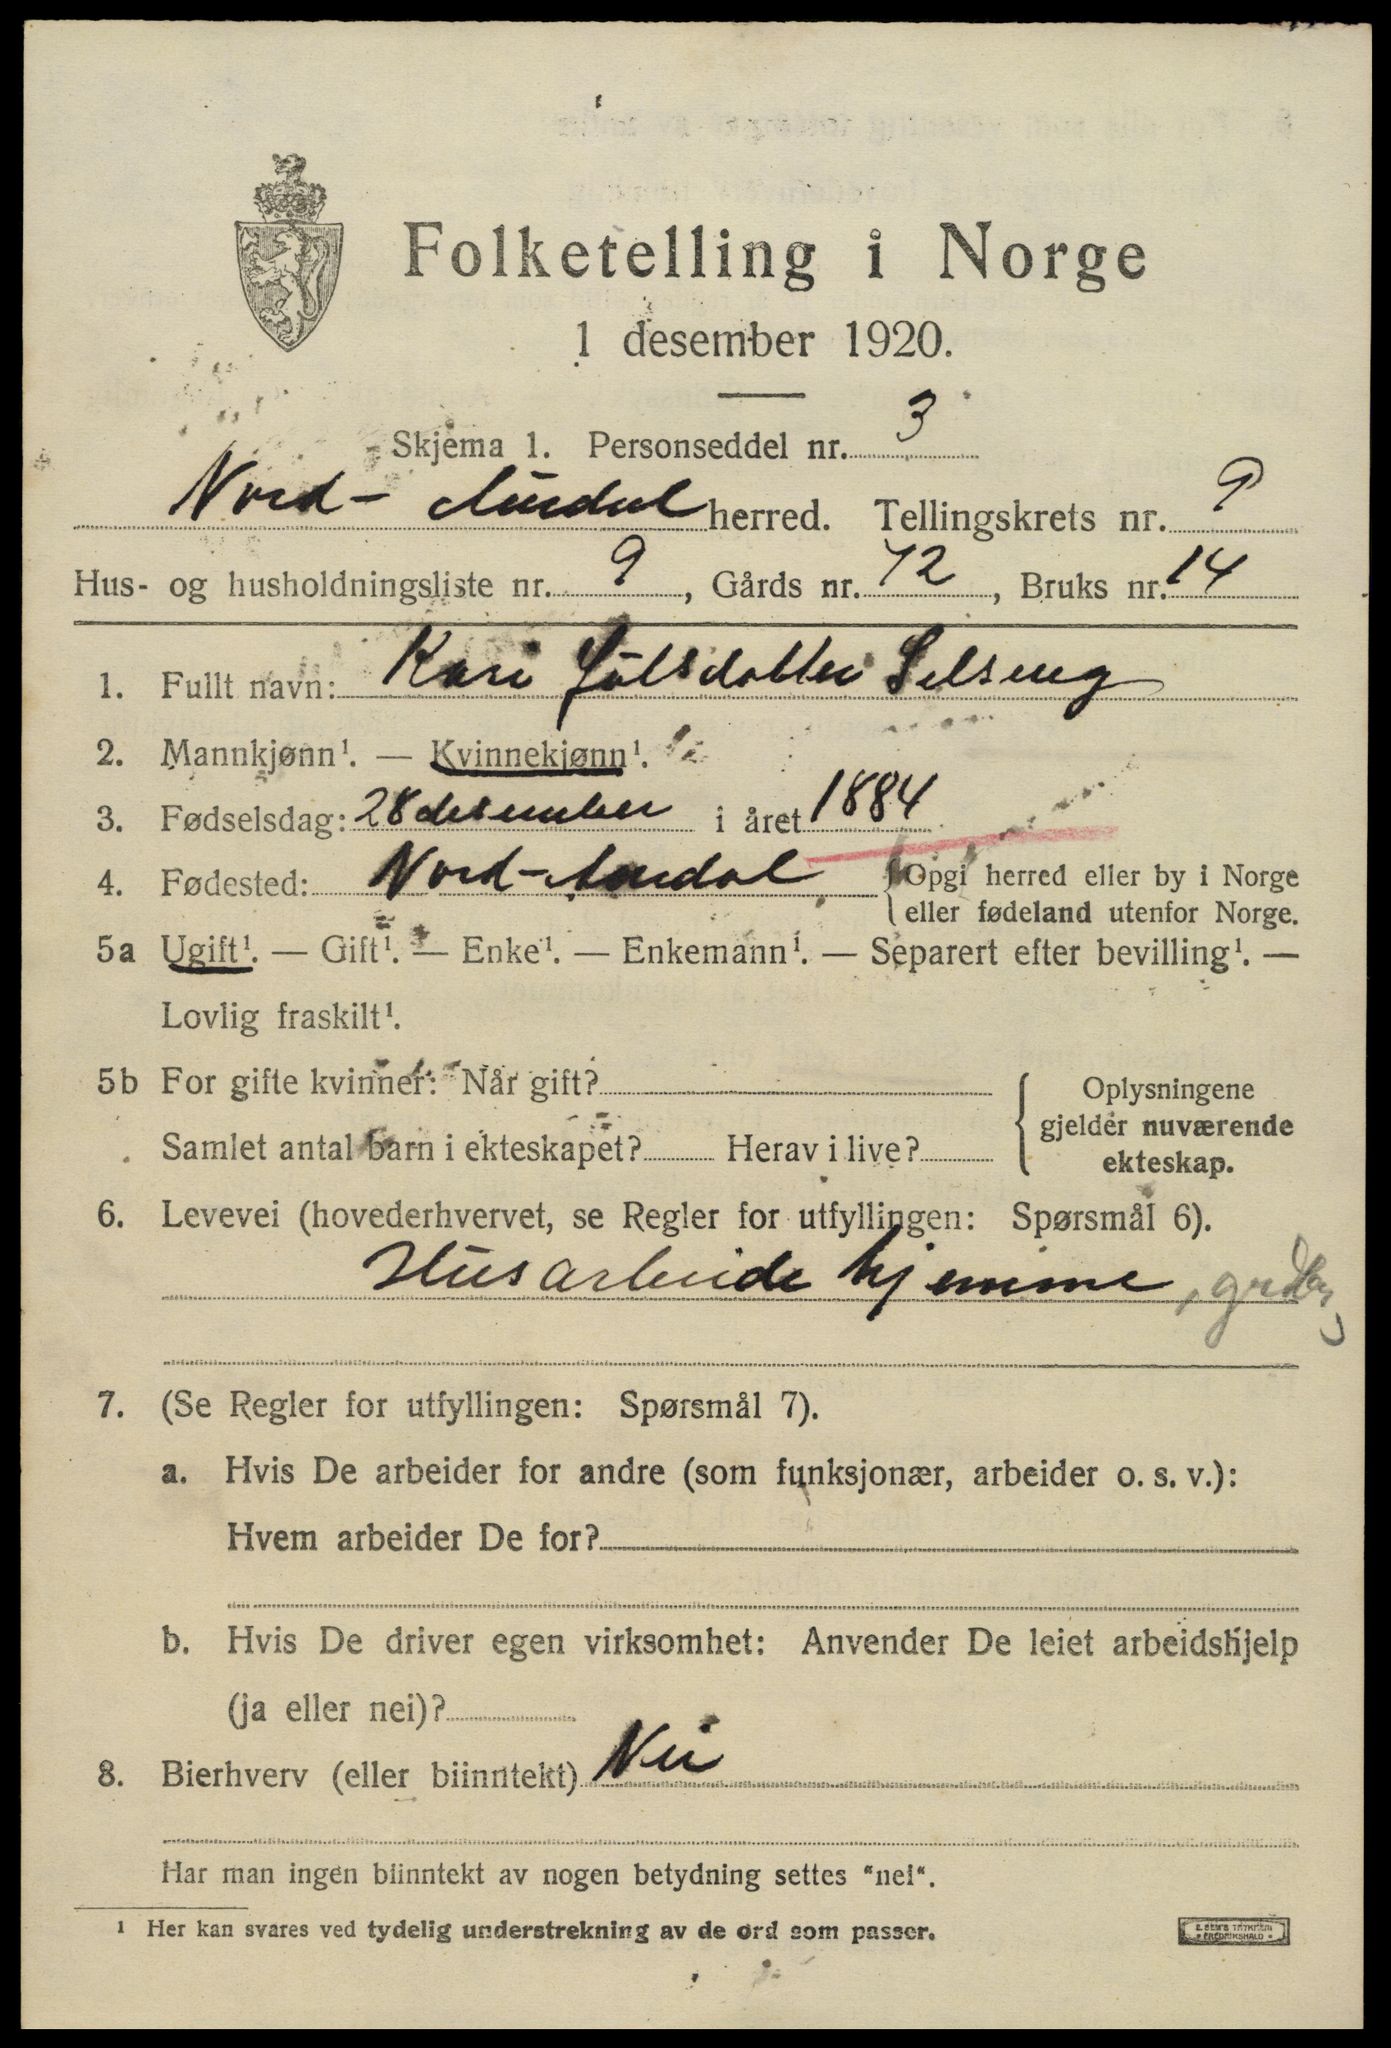 Folketelling i Norge
1 desember 1920.
Skjema 1. Personseddel nr. 3
Nord-Aurdal herred. Tellingskrets nr. 9
Hus- og husholdningsliste nr. 9, Gårds nr. 72, Bruks nr. 14
1. Fullt navn: Kari Selseng
2. Mannkjønn¹. — Kvinnekjønn¹.
3. Fødselsdag: 28 desember i året 1884
4. Fødested: Nord-Aurdal {Opgi herred eller by i Norge
eller fødeland utenfor Norge.
5a Ugift¹. — Gift¹. — Enke¹. — Enkemann¹. — Separert efter bevilling¹. —
Lovlig fraskilt¹.
5b For gifte kvinner: Når gift?
Samlet antal barn i ekteskapet? Herav i live?
Oplysningene
gjelder nuværende
ekteskap.
6. Levevei (hovederhvervet, se Regler for utfyllingen: Spørsmål 6).
Husarbeide hjemme,
7. (Se Regler for utfyllingen: Spørsmål 7).
a. Hvis De arbeider for andre (som funksjonær, arbeider o. s. v.):
Hvem arbeider De for?
b. Hvis De driver egen virksomhet: Anvender De leiet arbeidshjelp
(ja eller nei)?
8. Bierhverv (eller biinntekt) Nei
Har man ingen biinntekt av nogen betydning settes "nei".
¹ Her kan svares ved tydelig understrekning av de ord som passer.
E. SEM'S TRYKKERI
FREDRIKSHALD